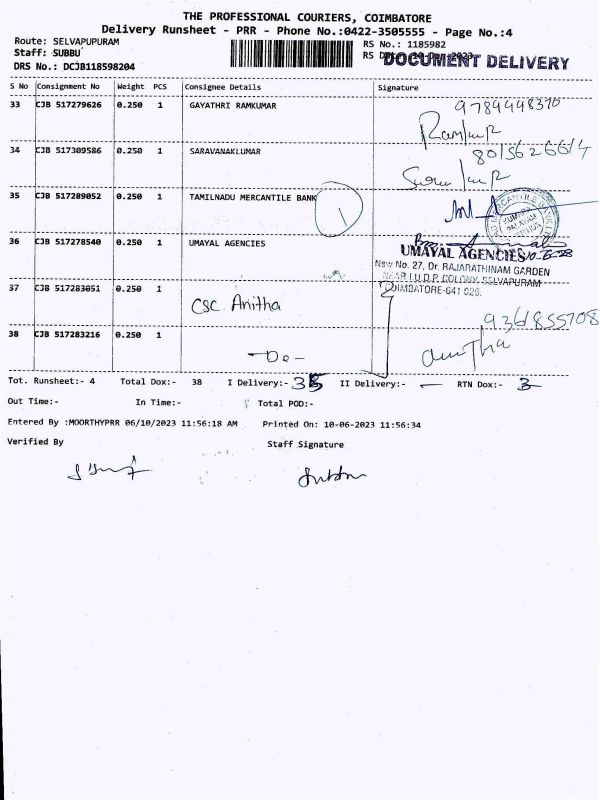 THE PROFESSIONAL COURIERS, COIMBATORE
Delivery Runsheet - PRR - Phone No.:0422-3505555 - Page No.:4
Route: SELVAPUPURAM
RS No.: 1185982
Staff: SUBBU
RS
DOCUMENT DELIVERY
DRS No.: DCJB118598204
S No Consignment No Weight PCS Consignee Details Signature
33 CJB 517279626 0.250 1 GAYATHRI RAMKUMAR
34 CJB 517309586 0.250 1 SARAVANAKLUMAR
35 CJB 517289052 0.250 1 TAMILNADU MERCANTILE BANK
36 CJB 517278540 0.250 1 UMAYAL AGENCIES
UMAYAL AGENCIES
New No. 27, Dr. RAJARATHINAM GARDEN
NEAR I.U.D.P. COLONY, SELVAPURAM
COIMBATORE-641 026.
37 CJB 517283051 0.250 1 CSC Anitha
9361855708
38 CJB 517283216 0.250 1 -Do- anitha
Tot. Runsheet:- 4 Total Dox:- 38 I Delivery:- 35 II Delivery:- — RTN Dox:- 3
Out Time:- In Time:- Total POD:-
Entered By :MOORTHYPRR 06/10/2023 11:56:18 AM Printed On: 10-06-2023 11:56:34
Verified By Staff Signature